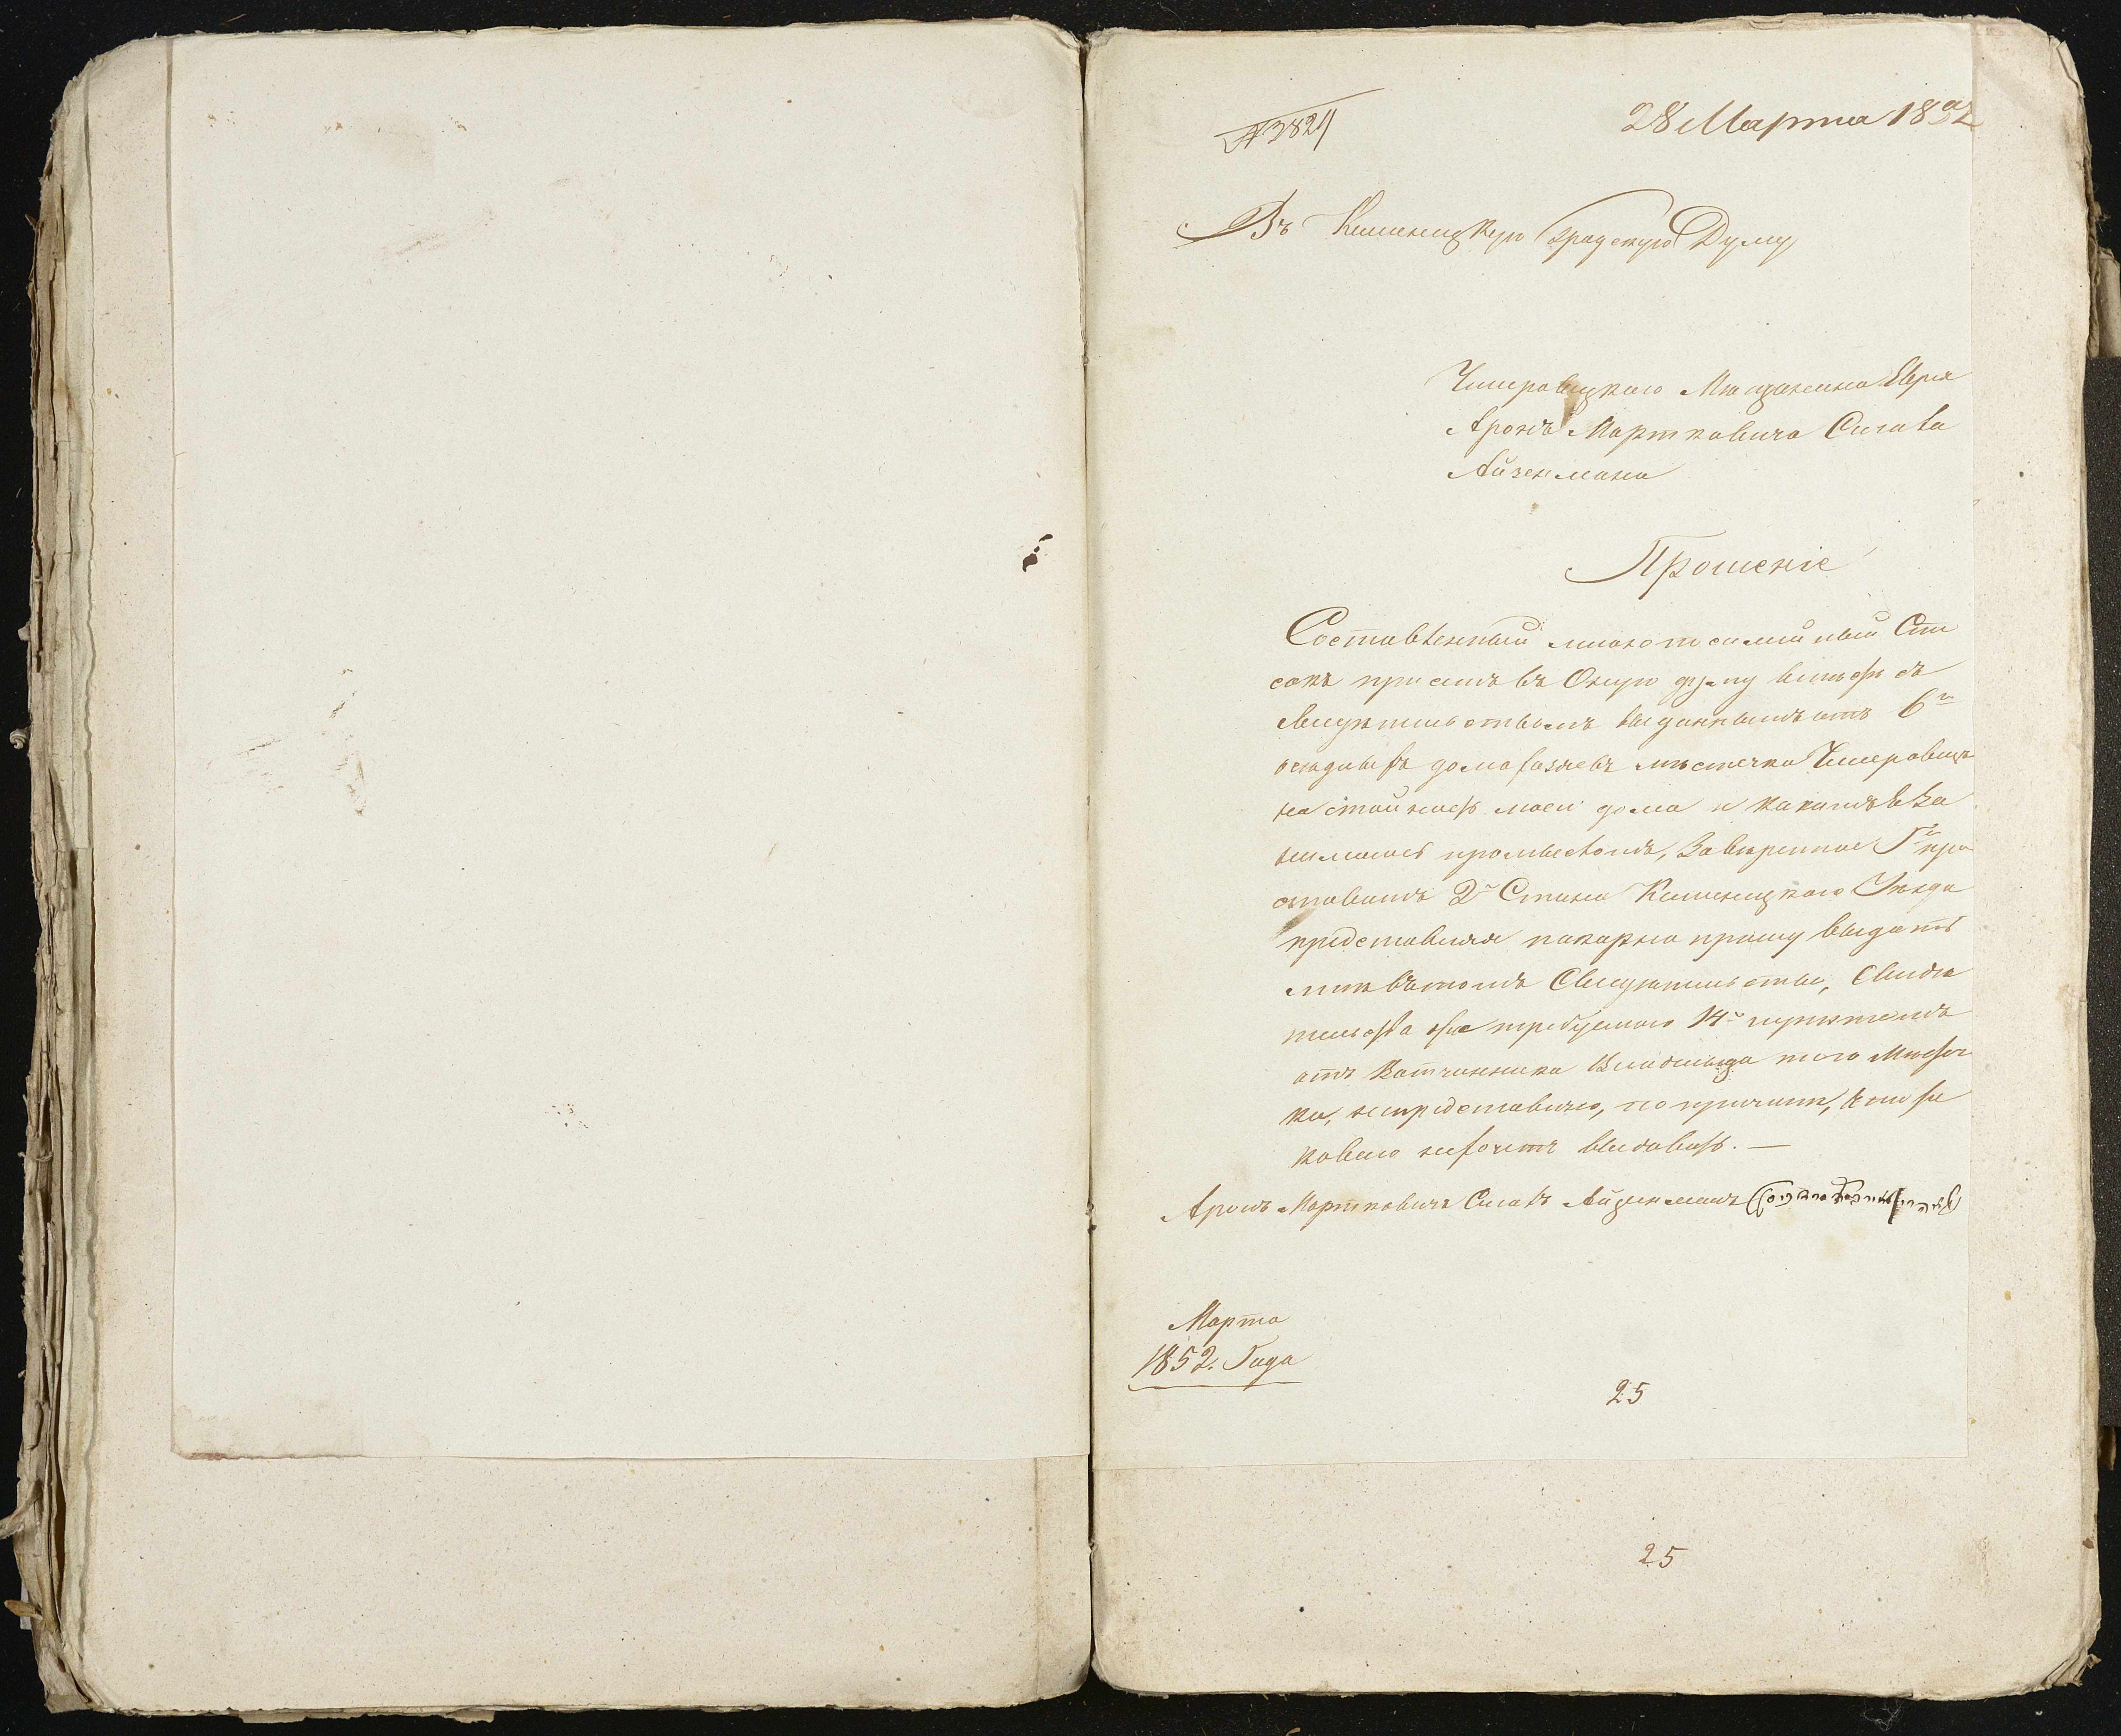 28 Марта 1852
№ 3824
Въ Каменецкую Градскую Думу
Чемеровецкаго Мѣщанина Еврея
Аронъ Мортковича Сигала
Айзенмана
Прошеніе
Составленный мною посемейный Спи
сокъ при семъ въ Оную думу вмѣстѣ съ
свидѣтельствомъ выданнымъ отъ 6ти
осѣдлыхъ домохозяевъ мѣстечка Чемеровецъ
на стойность моей дома и какимъ я за
нимаюсь промысломъ, завѣренное Гмъ при
ставомъ 2го Стана Каменецкаго Уѣзда
представляя покорно прошу выдать
мнѣ въ томъ Свидѣтельство, Свидѣ
тельства же требуемаго 14мъ пунктомъ
отъ Вотчинника Владѣльца того Мѣстеч
ка, непредставляю, по причинѣ, что же
коваго нехочетъ выдавать. —
Аронъ Мортковичъ Сигалъ Айзенманъ
Марта
1852. Года
25
25